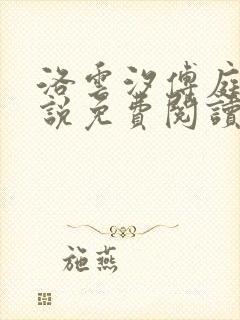 洛雲汐傅庭
說免費閱讀
施燕